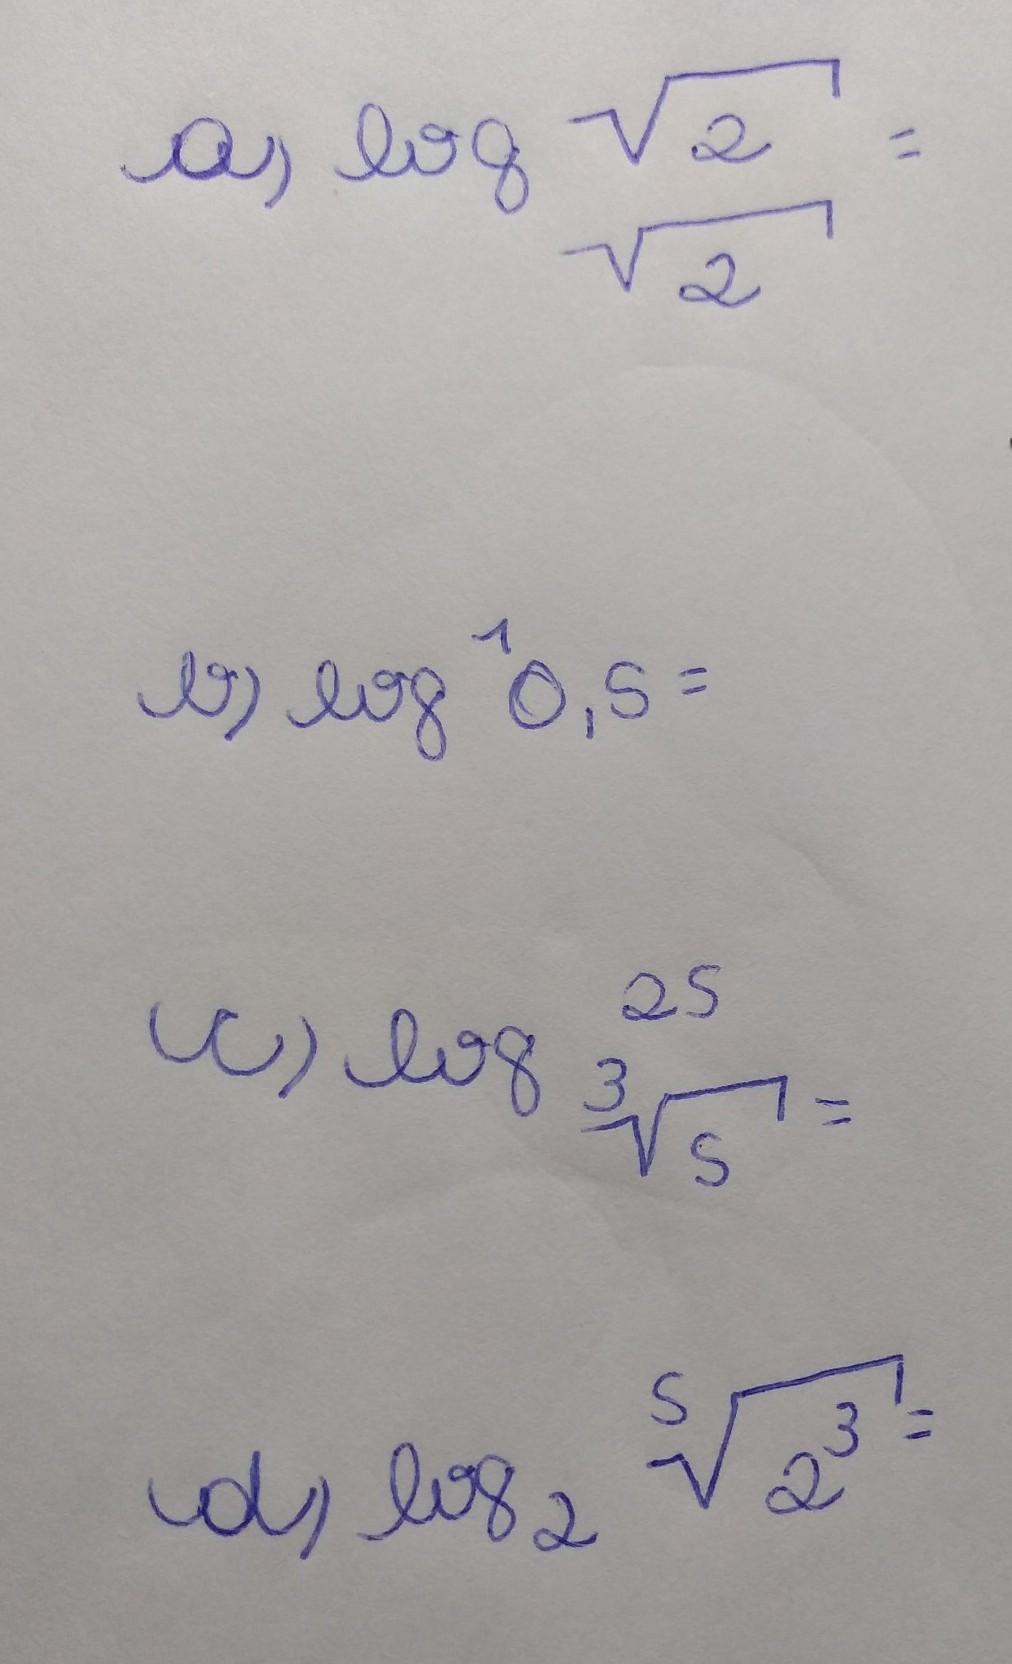 a) log √2 =
√2
b) log 1 0,5 =
c) log 25
∛5 =
d) log₂ ⁵√2³ =